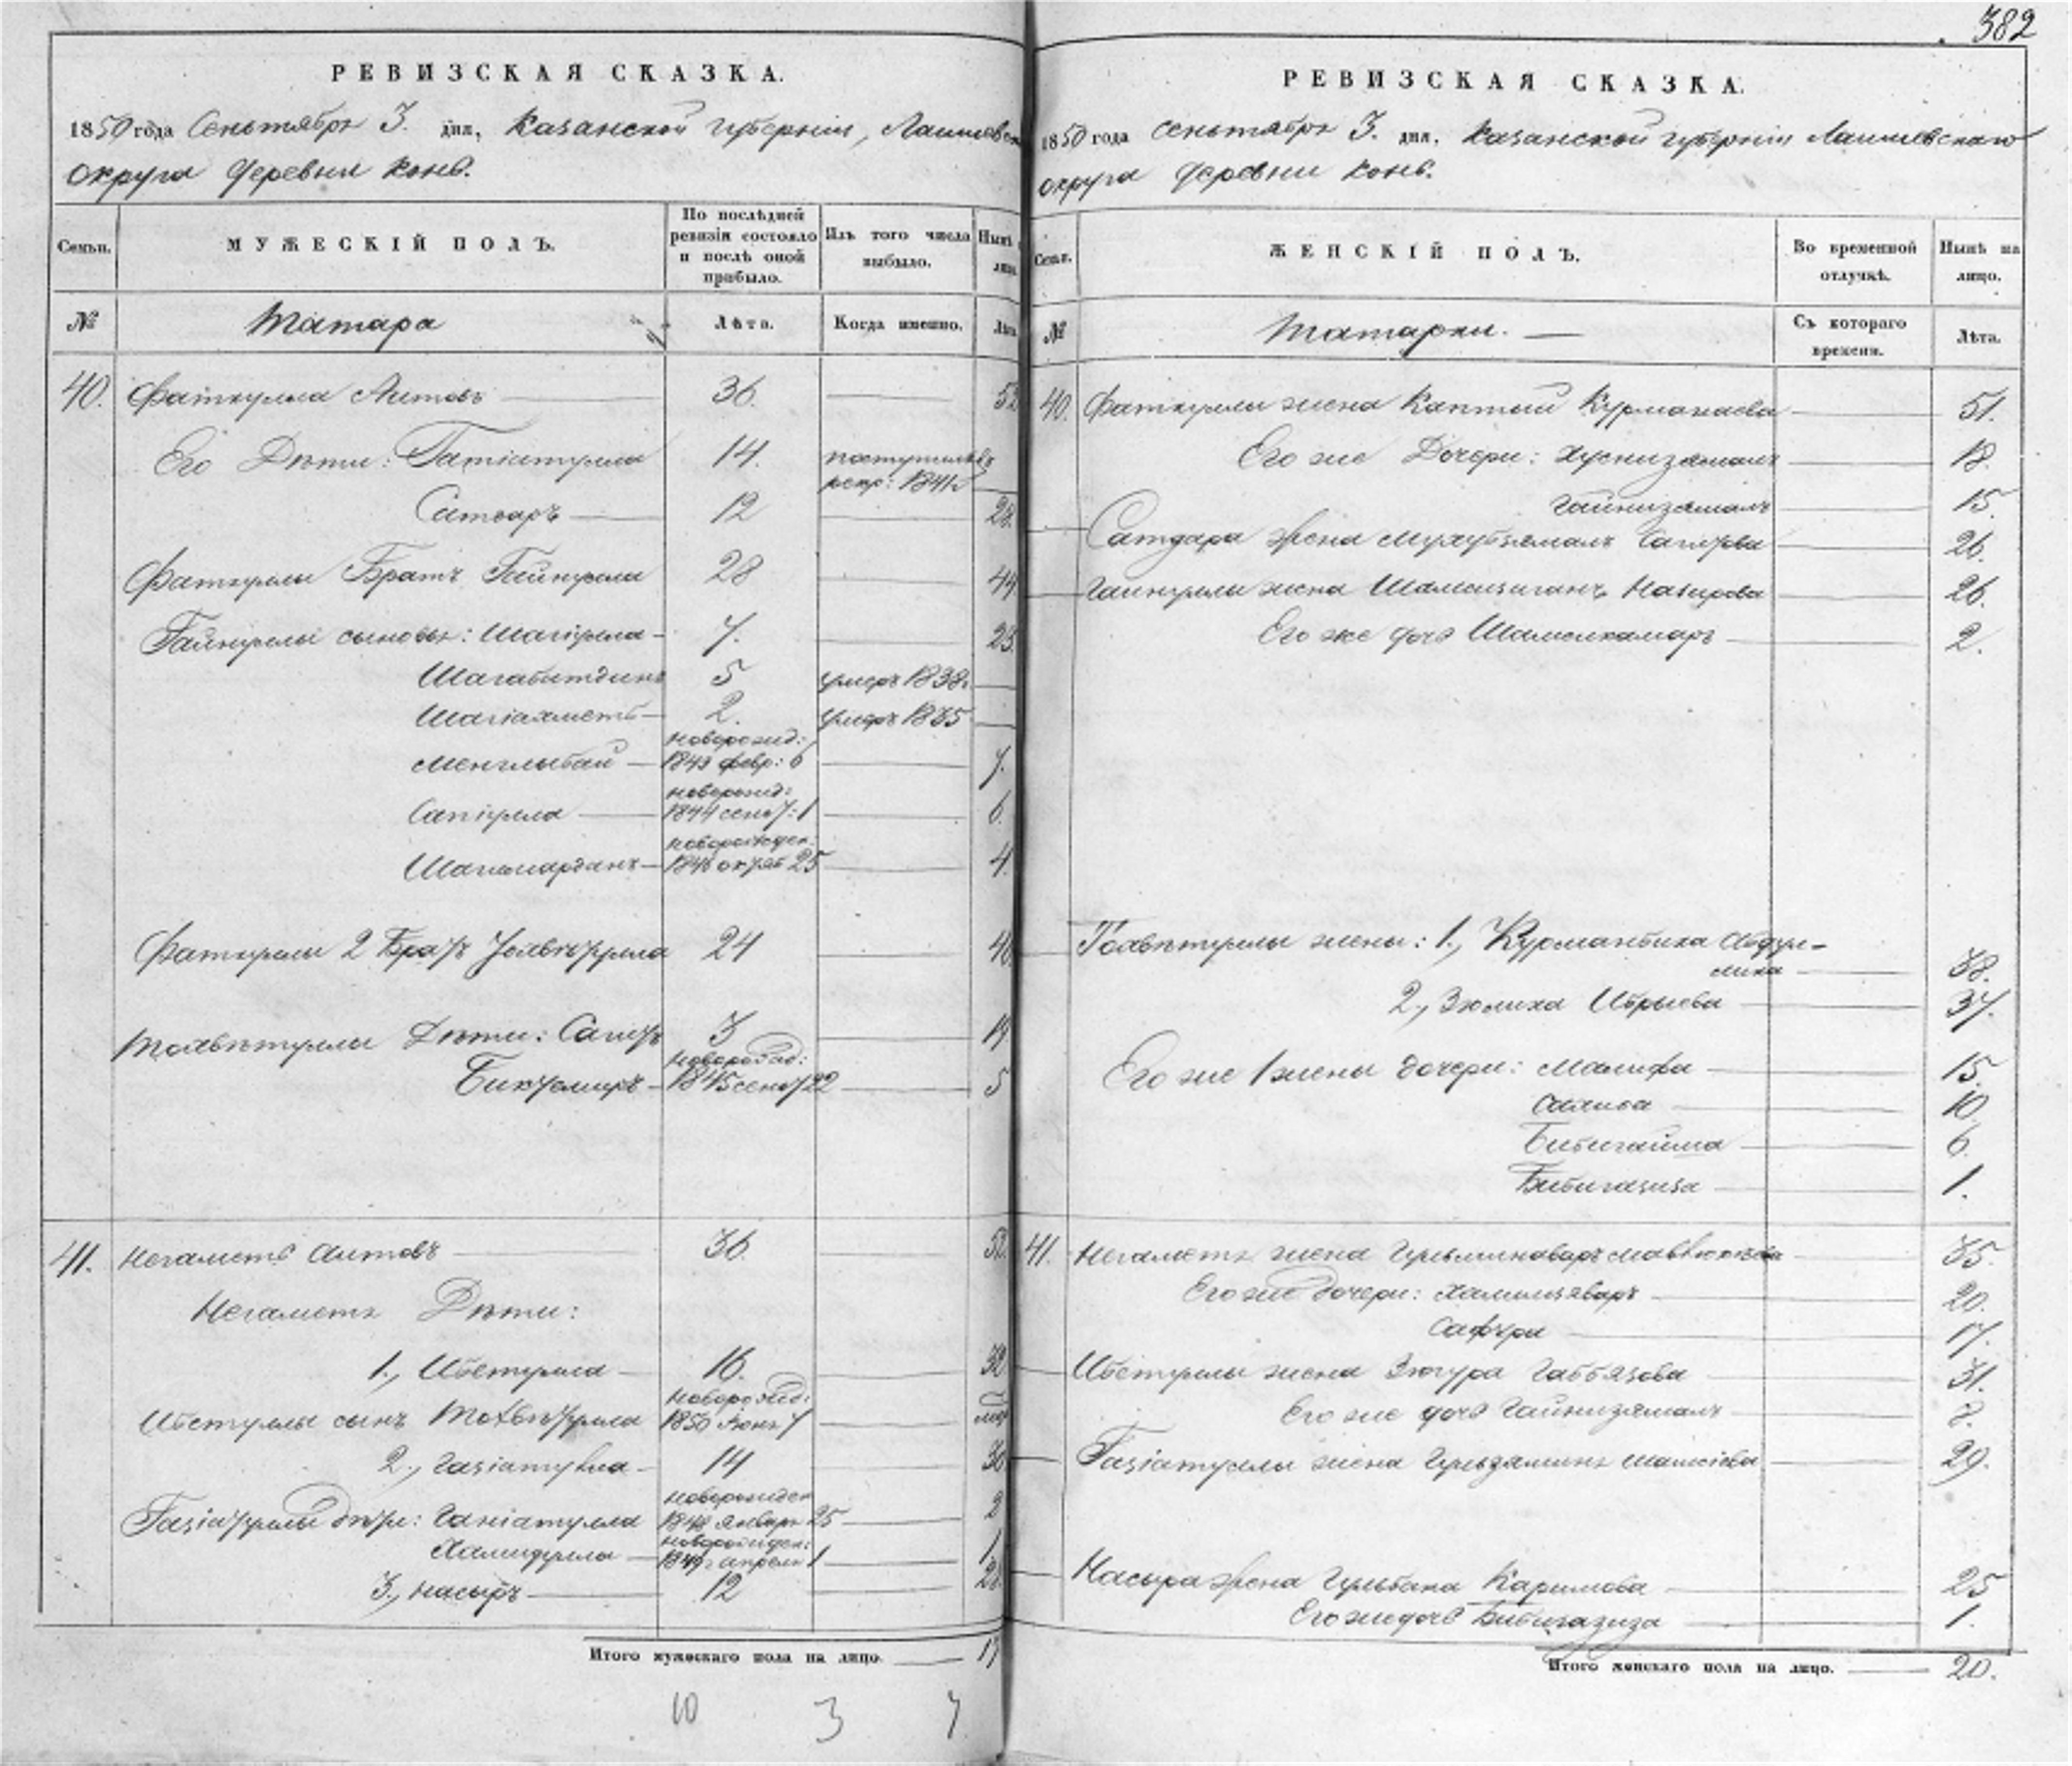 382
РЕВИЗСКАЯ СКАЗКА.
1850 года Сентября 3. дня, Казанской губерніи, Лаишевск
округа деревни Конб.
Семьи.
МУЖЕСКІЙ ПОЛЪ.
По послѣдней ревизіи состояло и послѣ оной прибыло.
Изъ того числа выбыло.
Нынѣ лицо.
№
Татара
Лѣта.
Когда именно.
Лѣта
40. Фаткулла Аитовъ 36. 52
Его Дѣти: Гатіатулла 14. поступилъ въ
рекр: 1841г
Сатваръ 12 28.
Фаткуллы Братъ Гайнулла 28 44
Гайнуллы сыновья: Шагіулла 7. 23.
Шагабитдинъ 5 умеръ 1838г
Шагіахметъ 2. умеръ 1835
новорожд:
Менглыбай 1843 февр: 6 7.
новорожд:
Сапіулла 1844 сент: 1 6.
новорожден:
Шагимарданъ 1846 октяб 25 4.
Фаткуллы 2 Братъ 24 40.
Дѣти: Сагитъ 3 19
новорожд:
Биктемиръ 1845 сент 22 5
41. Негаметъ Аитовъ 36. 52.
Негаметя Дѣти:
1., Ибетулла 16. 32
новорожд:
Ибетуллы сынъ 1850 Іюня 7
2., Газіатулла 14 30
новорожден
Газіатуллы дѣти: Ганіатулла 1848 Января 25 2
новорожден:
Хамидулла 1849г апрѣля 1 1
3., Насыръ 12 28.
Итого мужескаго пола на лицо. 17
10 3 7
РЕВИЗСКАЯ СКАЗКА.
1850 года Сентября 3. дня, Казанской губерніи Лаишевскаго
округа деревни Конб.
Семьи.
ЖЕНСКІЙ ПОЛЪ.
Во временной отлучкѣ.
Нынѣ на лицо.
№
Татарки.
Съ котораго времени.
Лѣта.
40. Фаткуллы жена Каптый Курманаева 51.
Его же Дочери: Хуснизямалъ 18.
Гайнизямалъ 15.
Сатдара Жена Мухубзямалъ Сагирова 26.
Гайнуллы жена Шамсизиганъ Назирова 26.
Его же дочь Шамсикамаръ 2.
жены: 1., Курманбика Абдул-
лина 38.
2., Зюлиха Ибрыева 37.
Его же 1 жены дочери: Малифа 15.
10.
Бибигайша 6.
Бибигазиза 1.
41. Негаметя жена 35.
Его же дочери: 20.
Сафура 17.
Ибетуллы жена Зюгура Габбязова 31.
Его же дочь Гайнизямалъ
Газіатуллы жена 29.
Насыра Жена Гульбана Каримова 25
Его же дочь Бибигазиза 1.
Итого женскаго пола на лицо. 20.